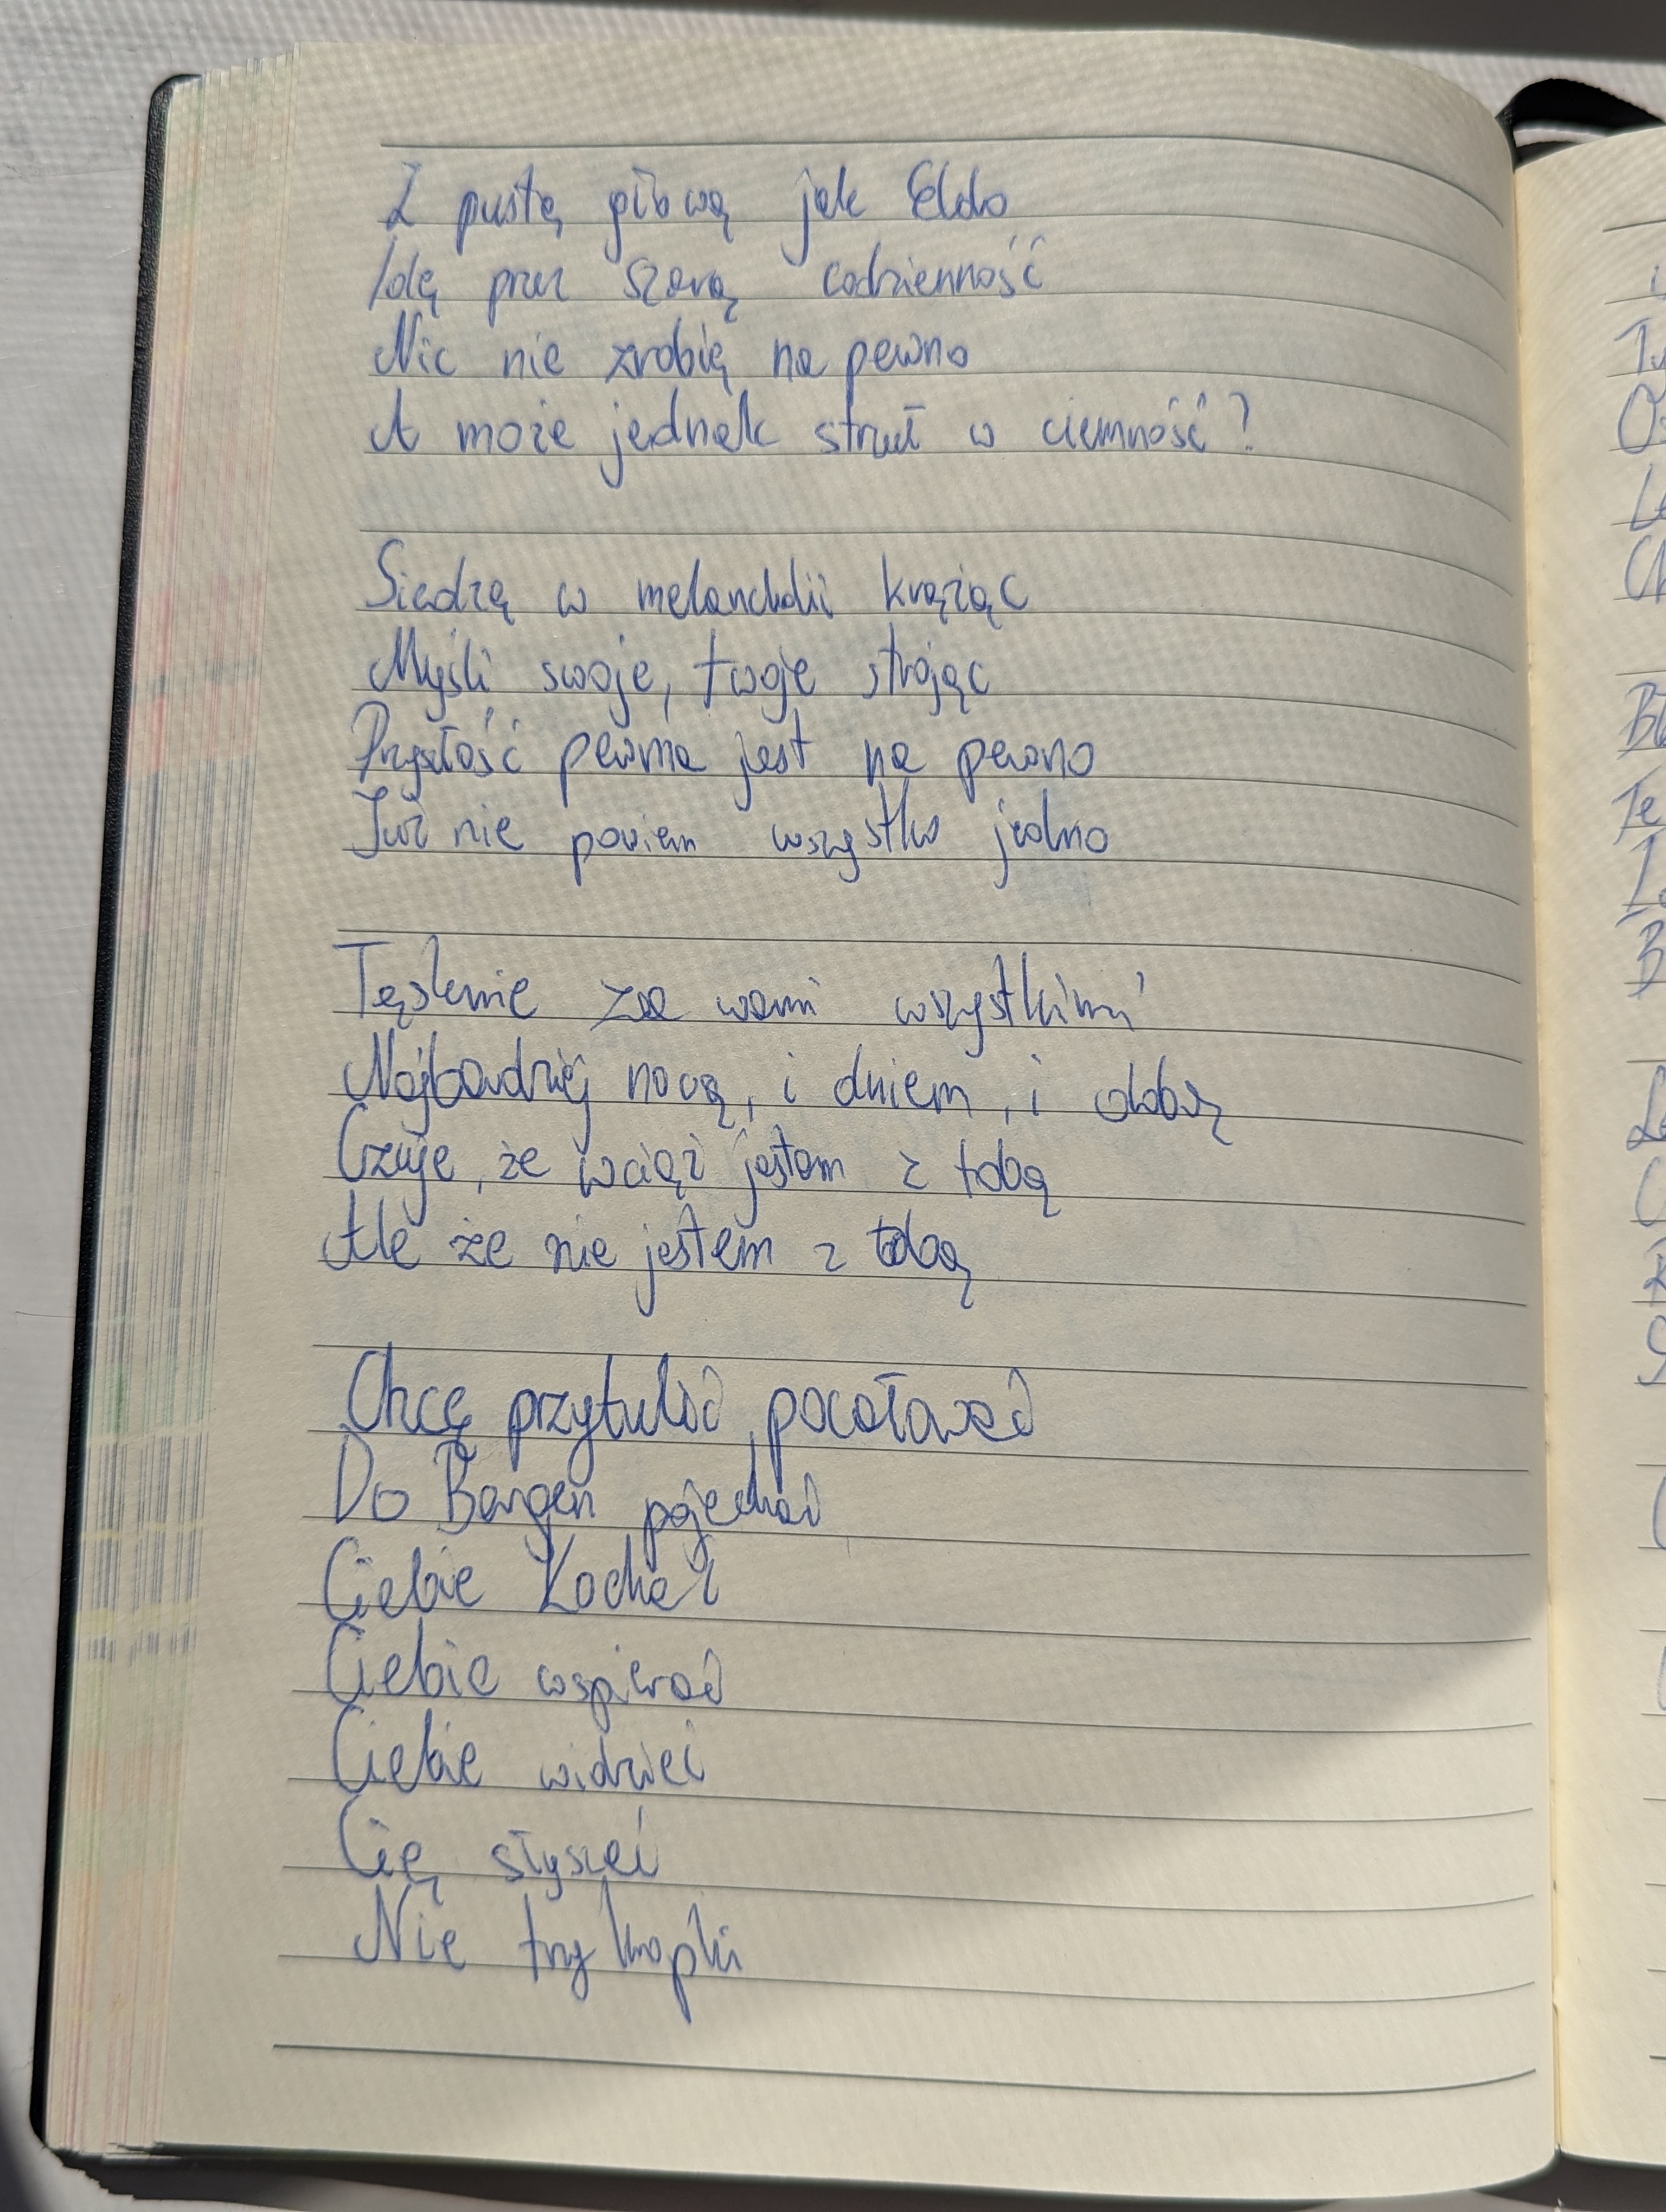 Z pustą głową jak Eldo
Idę przez szarą codzienność
Nic nie zrobię na pewno
A może jednak strzał w ciemność?
Siedzę w melancholii krążąc
Myśli swoje, twoje strojąc
Przyszłość pewna jest na pewno
Już nie powiem wszystko jedno
Tęsknie za wami wszystkimi
Najbardziej nocą, i dniem, i dobą
Czuje, że wciąż jestem z tobą
Ale że nie jestem z tobą
Chcę przytulić, pocałować
Do Bergen pojechać
Ciebie kochać
Ciebie wspierać
Ciebie widzieć
Cię słyszeć
Nie trzy kropki